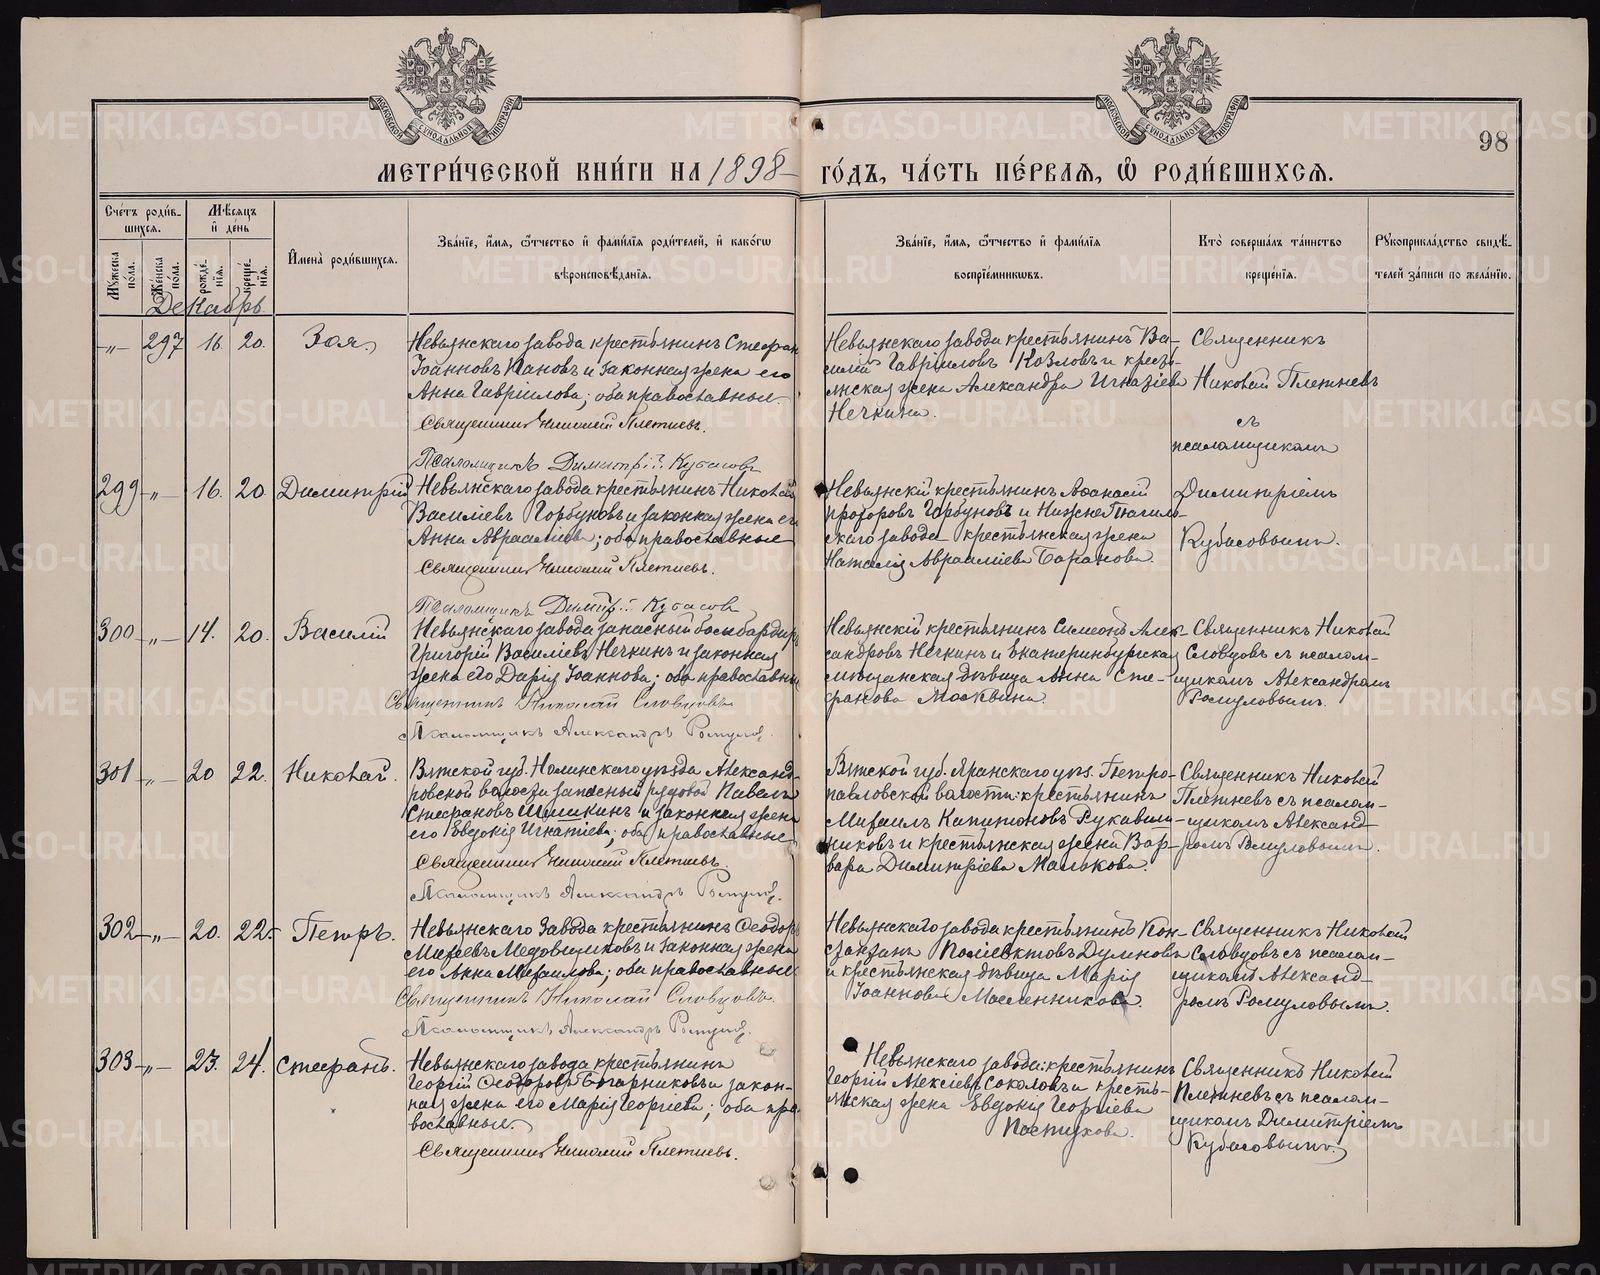 98
МЕТРИ́ЧЕСКОЙ КНИ́ГИ НА 1898 ГО́ДЪ, ЧА́СТЬ ПЕ́РВАѦ, Ѽ РОДИ́ВШИХСѦ.
Сче́тъ роди́в-
шихсѧ.
Мѣ́сѧцъ
и҆ де́нь
Мꙋ́жеска
пола.
Же́нска
по́ла.
рожде́-
нїѧ.
креще́-
нїѧ.
И҆мена̀ роди́вшихсѧ.
Зва́нїе, и҆́мѧ, ѻ҆́тчество и҆ фамі́лїѧ роди́телей, и҆ како́гѡ
вѣроисповѣ́данїѧ.
Зва́нїе, и҆́мѧ, ѻ҆́тчество и҆ фамі́лїѧ
воспрїе́мникѡвъ.
Кто̀ соверша́лъ та́инство
креще́нїѧ.
Рꙋкоприкла́дство свидѣ́-
телей за́писи по жела́нїю.
Декабрь
-„- 297 16. 20. Зоя
Невьянскаго завода крестьянинъ Стефан
Іоанновъ Пановъ и законная жена его
Анна Гавріилова; оба православные.
Священникъ Николай Плетневъ.
Псаломщикъ Димитрій Кубасовъ
Невьянскаго завода крестьянинъ Ва-
силій Гавріиловъ Козловъ и кресть-
янская жена Александра Игнатіева
Нечкина.
Священникъ
Николай Плетневъ
съ
псаломщикомъ
299 -„- 16. 20 Димитрій
Невьянскаго завода крестьянинъ Николай
Василіевъ Горбуновъ и законная жена его
Анна Авраамиева; оба православные
Священникъ Николай Плетневъ.
Псаломщикъ Димитрій Кубасовъ
Невьянскій крестьянинъ Аѳанасій
Прохоровъ Горбуновъ и Нижне Тагиль-
скаго завода крестьянская жена
Наталія Авраамиева Баранова.
Димитріемъ
Кубасовымъ.
300 -„- 14. 20. Василій
Невьянскаго завода запасный бомбардиръ
Григорій Василіевъ Нечкинъ и законная
жена его Дарія Іоаннова; оба православные
Священникъ Николай Словцовъ
Псаломщикъ Александръ Ромулов.
Невьянскій крестьянинъ Симеонъ Алек-
сандровъ Нечкинъ и Екатеринбургская
мѣщанская дѣвица Анна Сте-
фанова Москвина.
Священникъ Николай
Словцовъ съ псалом-
щикомъ Александромъ
Ромуловымъ.
301 -„- 20 22. Николай.
Вятской губ. Нолинскаго уѣзда Александ-
ровской волости запасный рядовой Павелъ
Стефановъ Шишкинъ и законная жена
его Евдокія Игнатіева; оба православные
Священникъ Николай Плетневъ.
Псаломщикъ Александръ Ромулов.
Вятской губ. Яранскаго уѣз. Петро-
павловской волости: крестьянинъ
Михаилъ Капитоновъ Рукавиш-
никовъ и крестьянская жена Вар-
вара Димитріева Малькова.
Священникъ Николай
Плетневъ съ псалом-
щикомъ Александ-
ромъ Ромуловымъ.
302 -„- 20. 22. Петръ.
Невьянскаго завода крестьянинъ Ѳеодоръ
Михеевъ Медовщиковъ и законная жена
его Анна Михаилова; оба православные
Священникъ Николай Словцовъ.
Псаломщикъ Александръ Ромулов.
Невьянскаго завода крестьянинъ Кон-
стантинъ Поліевктовъ Думновъ
и крестьянская дѣвица Марія
Іоаннова Масленникова.
Священникъ Николай
Словцовъ съ псалом-
щикомъ Александ-
ромъ Ромуловымъ.
303 -„- 23. 24. Стефанъ.
Невьянскаго завода крестьянинъ
Георгій Ѳеодоровъ Богарниковъ и закон-
ная жена его Марія Георгіева; оба пра-
вославные.
Священникъ Николай Плетневъ.
Невьянскаго завода: крестьянинъ
Георгій Алексіевъ Соколовъ и кресть-
янская жена Евдокія Георгіева
Постникова.
Священникъ Николай
Плетневъ съ псалом-
щикомъ Димитріемъ
Кубасовымъ.
METRIKI.GASO-URAL.RU